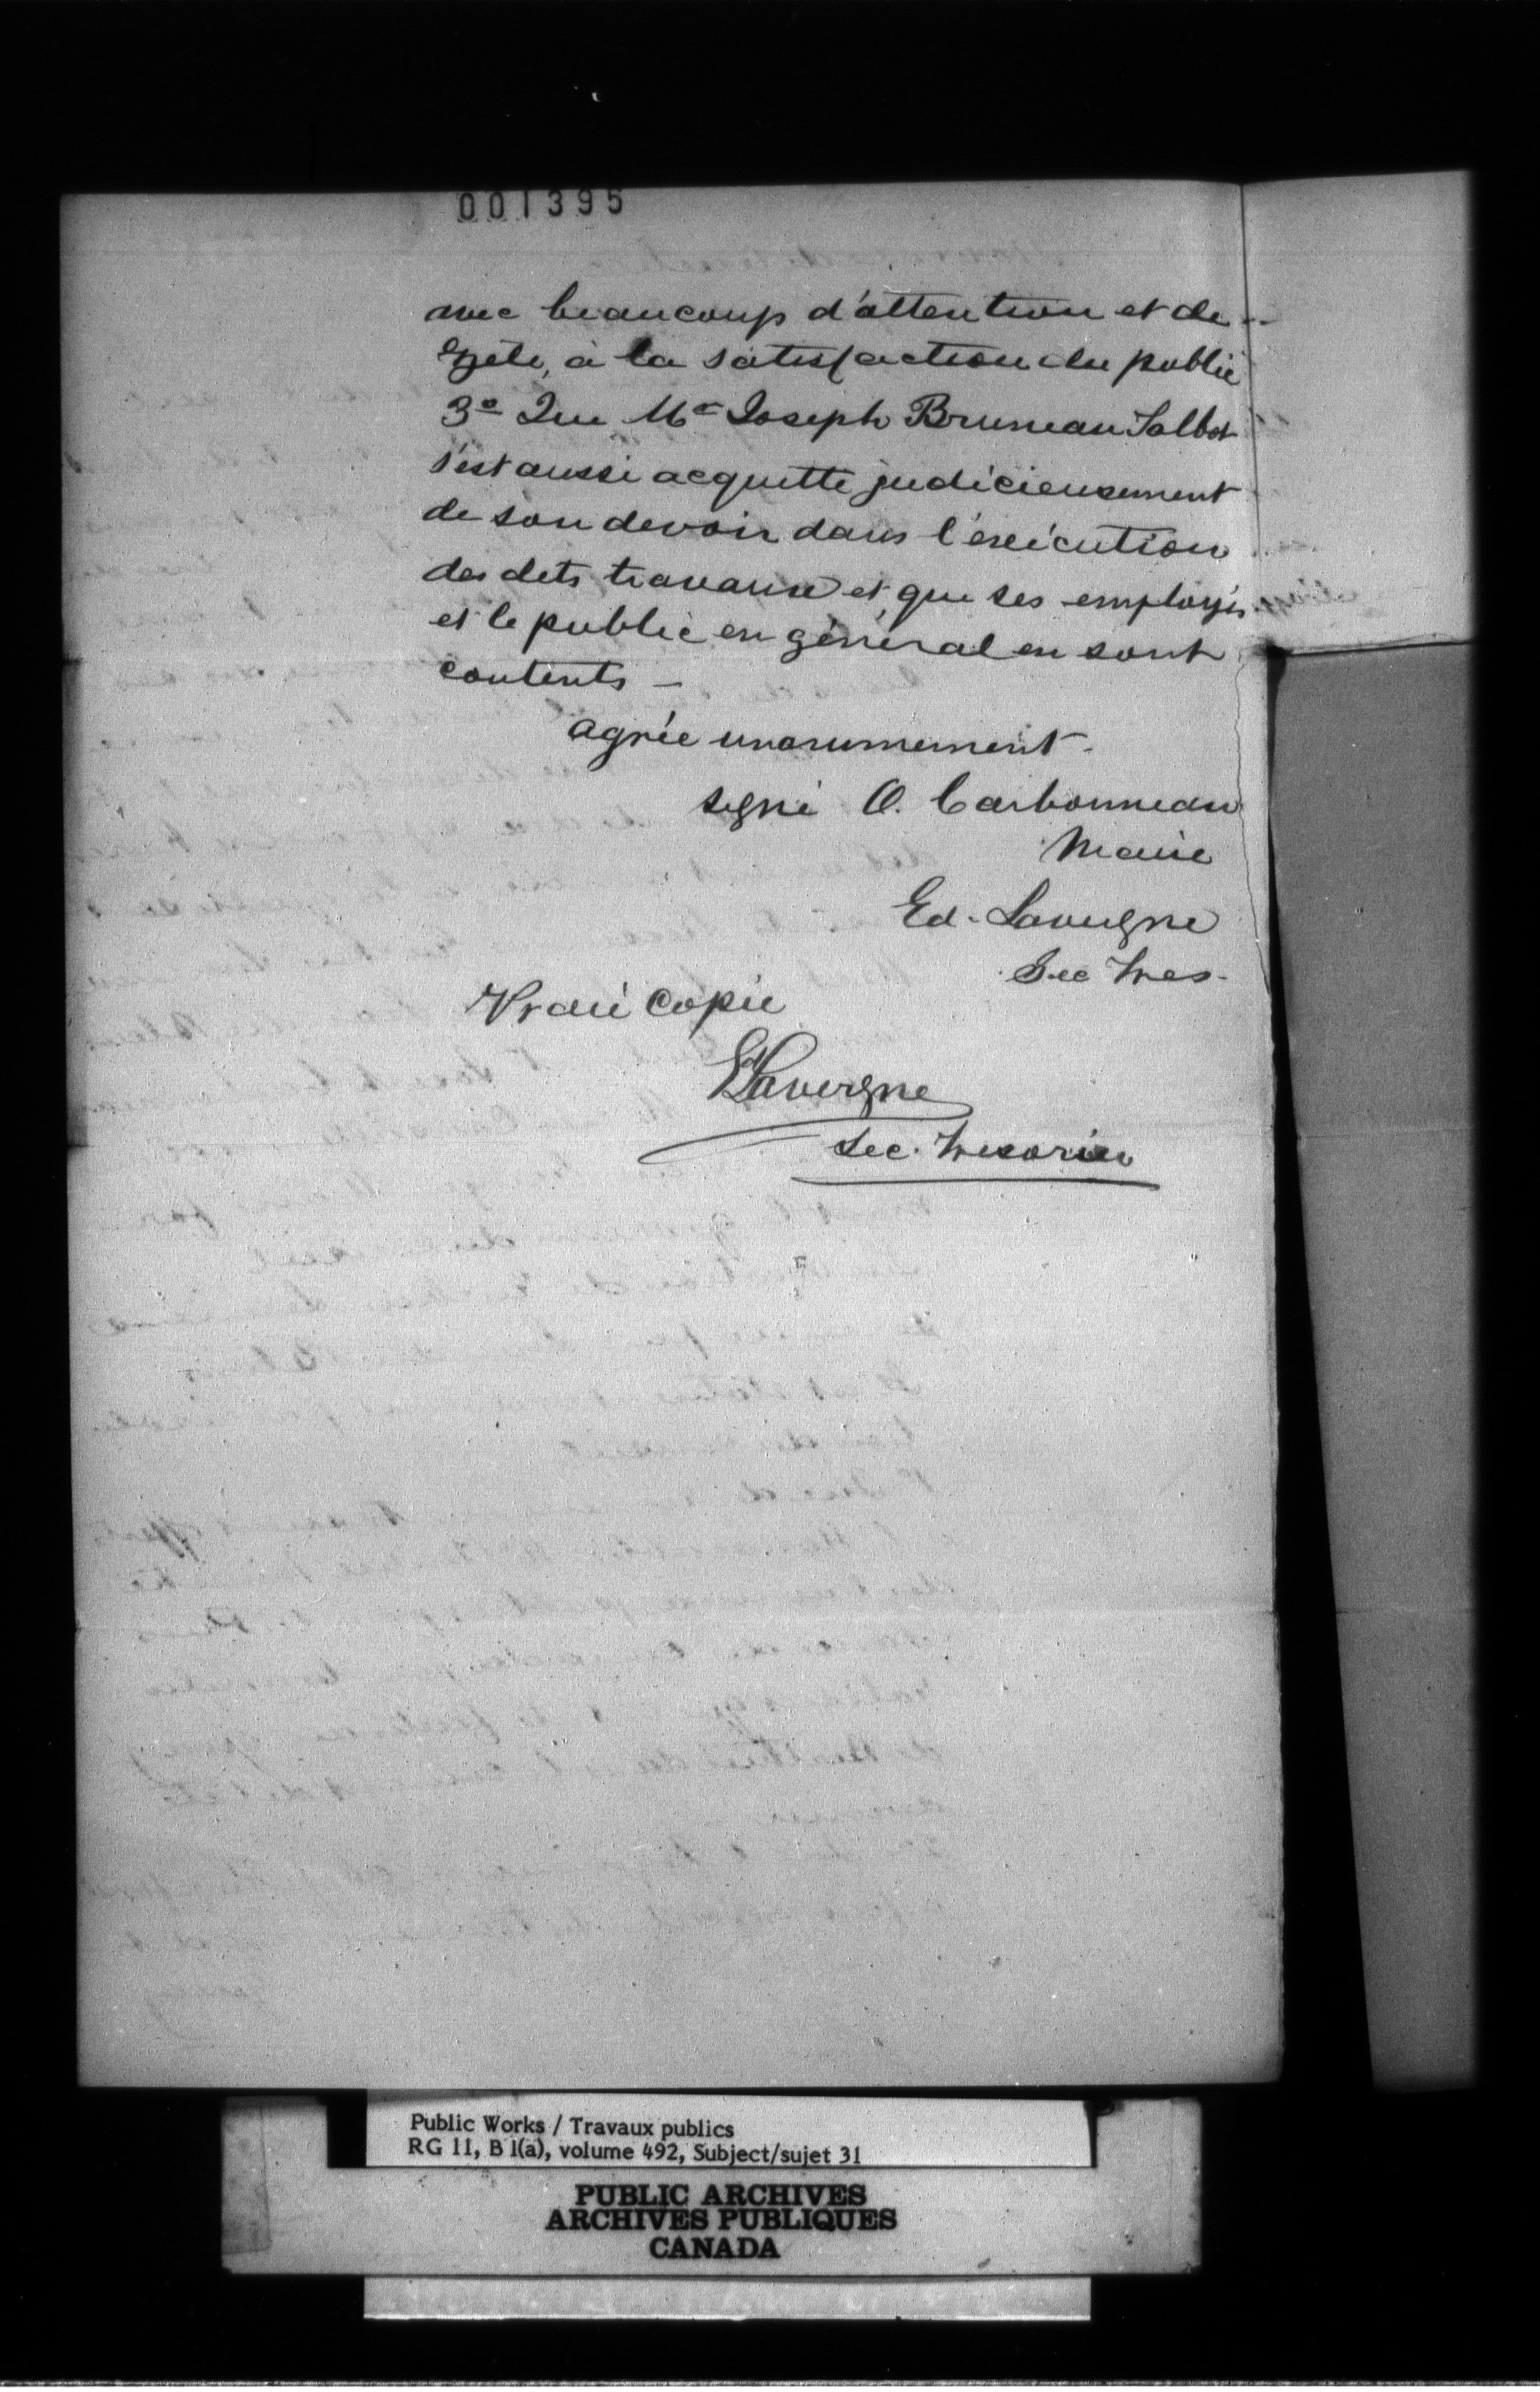 001395
avec beaucoup d'attention et de
zèle, à la satisfaction du public
3º Que Mr Joseph Bruneau Talbot
s'est aussi acquitté judicieusement
de son devoir dans l'exécution
des dits travaux et que ses employés
et le public en général en sont
contents —
agréé unanimement.
signé O. Carbonneau
Maire
Ed. Lavergne
Sec Tres.
Vraie Copie
Ed Lavergne
Sec. Tresorier
Public Works / Travaux publics
RG 11, B 1(a), volume 492, Subject/sujet 31
PUBLIC ARCHIVES
ARCHIVES PUBLIQUES
CANADA